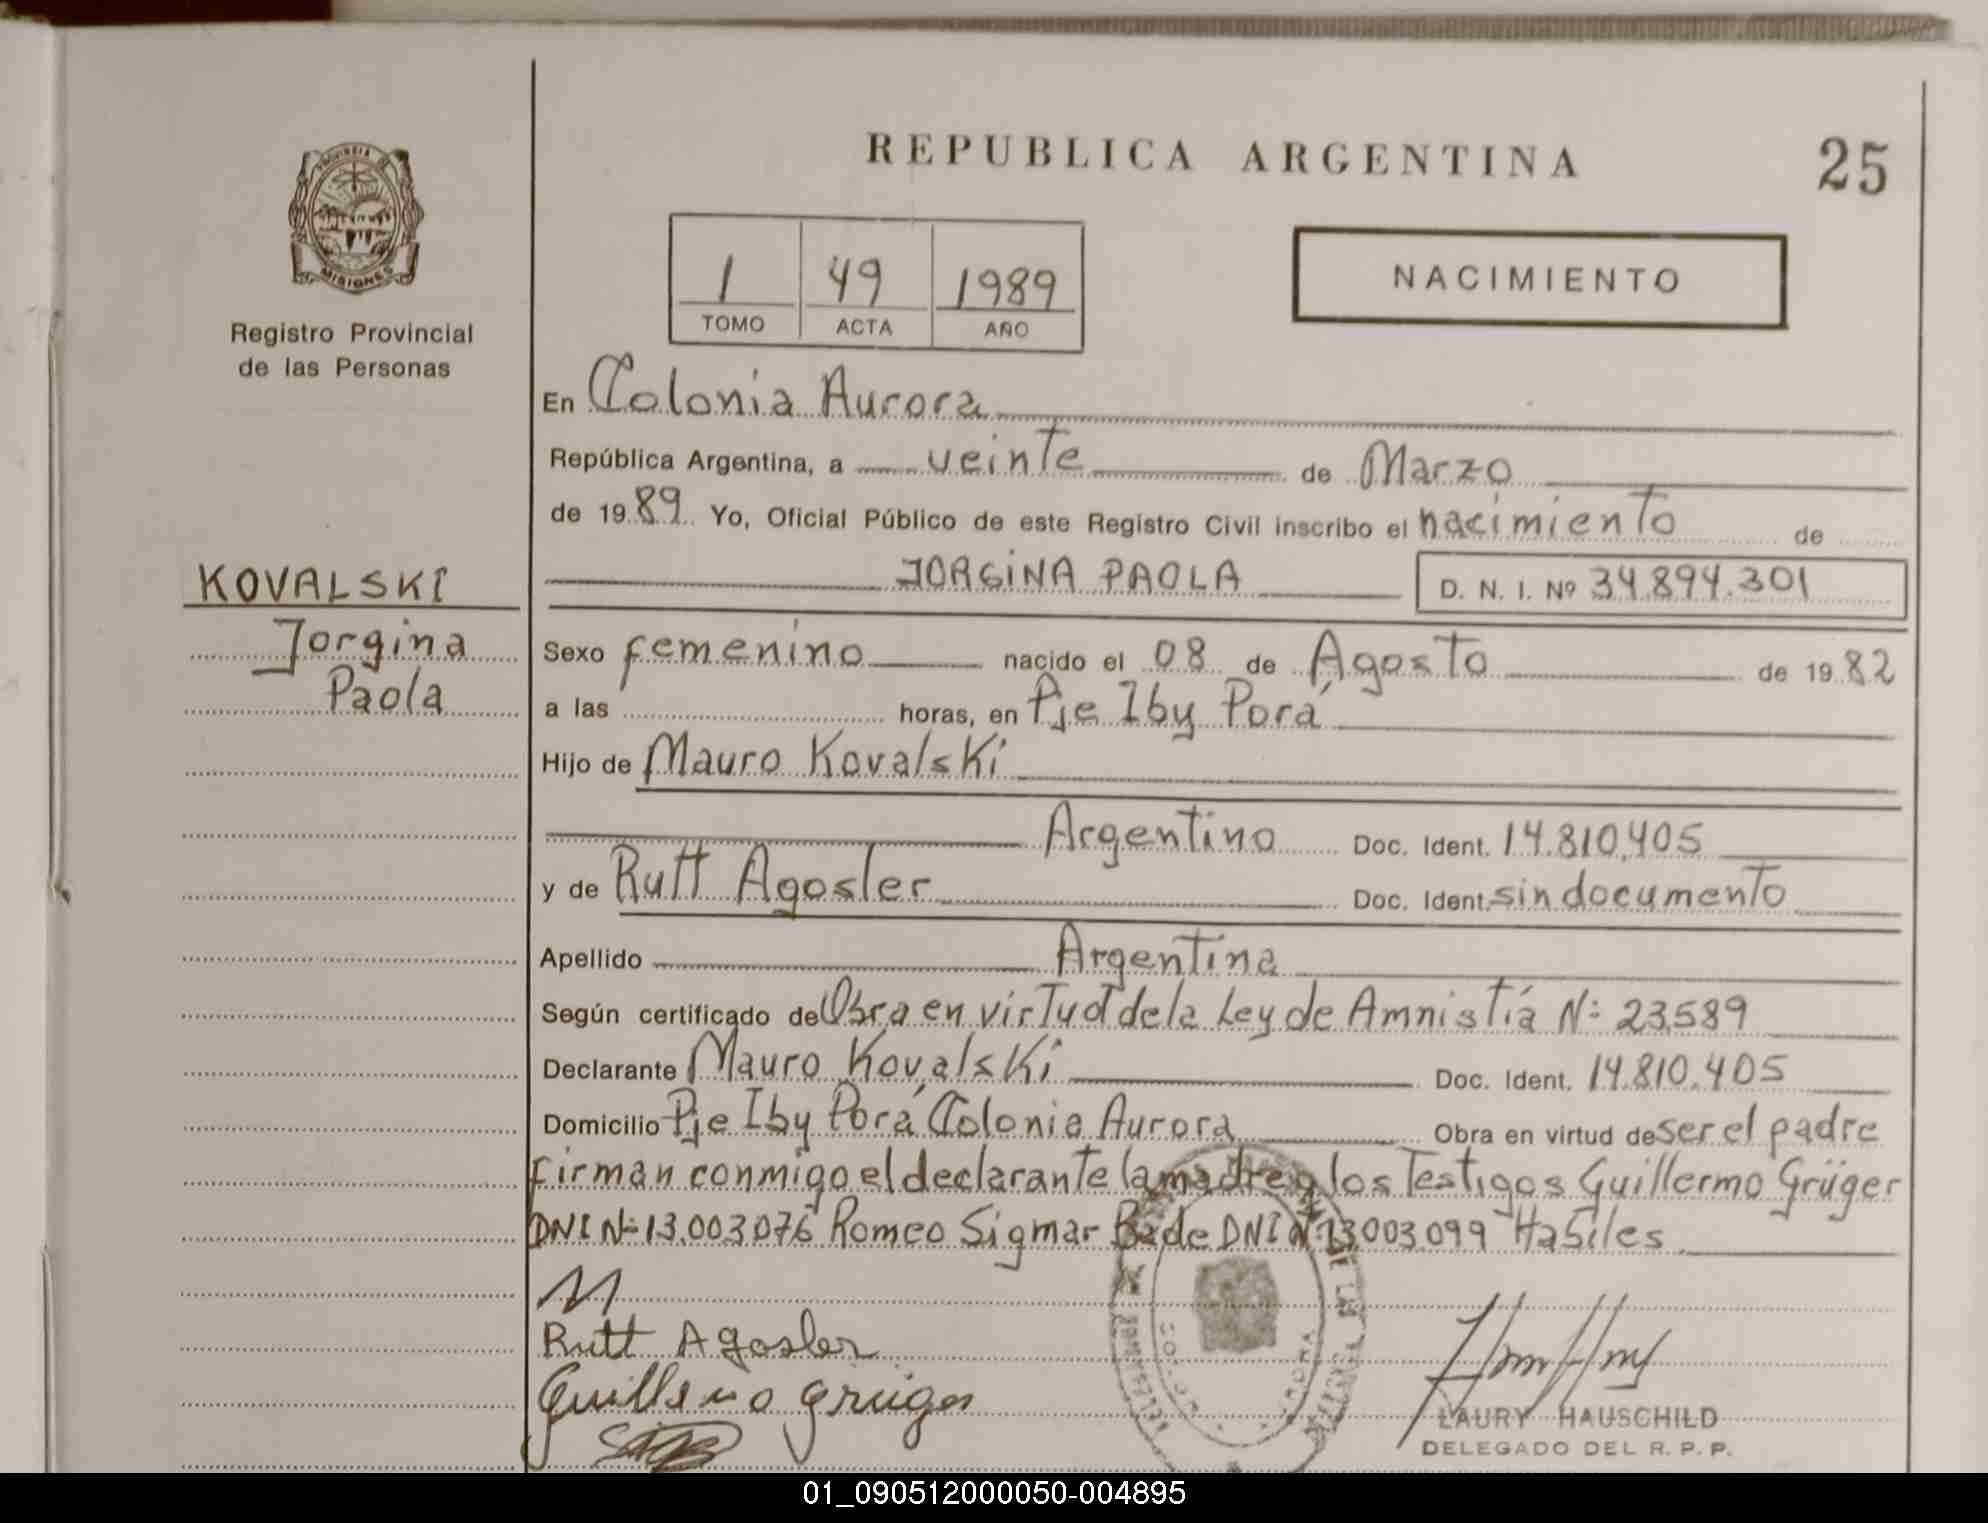 REPUBLICA ARGENTINA
25
PROVINCIA DE
MISIONES
Registro Provincial
de las Personas
1 49 1989
TOMO ACTA AÑO
NACIMIENTO
En Colonia Aurora
República Argentina, a veinte de Marzo
de 1989 Yo, Oficial Público de este Registro Civil inscribo el nacimiento de
KOVALSKI
Jorgina
Paola
JORGINA PAOLA D. N. I. Nº 34.894.301
Sexo femenino nacido el 08 de Agosto de 1982
a las horas, en Pje Iby Porá
Hijo de Mauro Kovalski
Argentino Doc. Ident. 14.810.405
y de Rutt Agosler Doc. Ident. sin documento
Apellido Argentina
Según certificado de Obra en virtud de la Ley de Amnistía Nº 23.589
Declarante Mauro Kovalski Doc. Ident. 14.810.405
Domicilio Pje Iby Porá Colonia Aurora Obra en virtud de ser el padre
firman conmigo el declarante la madre y los Testigos Guillermo Grüger
DNI Nº 13.003.076 Romeo Sigmar Bade DNI Nº 13.003.099 Habiles
Rutt Agosler
Guillermo Grüger
LAURY HAUSCHILD
DELEGADO DEL R. P. P.
01_090512000050-004895